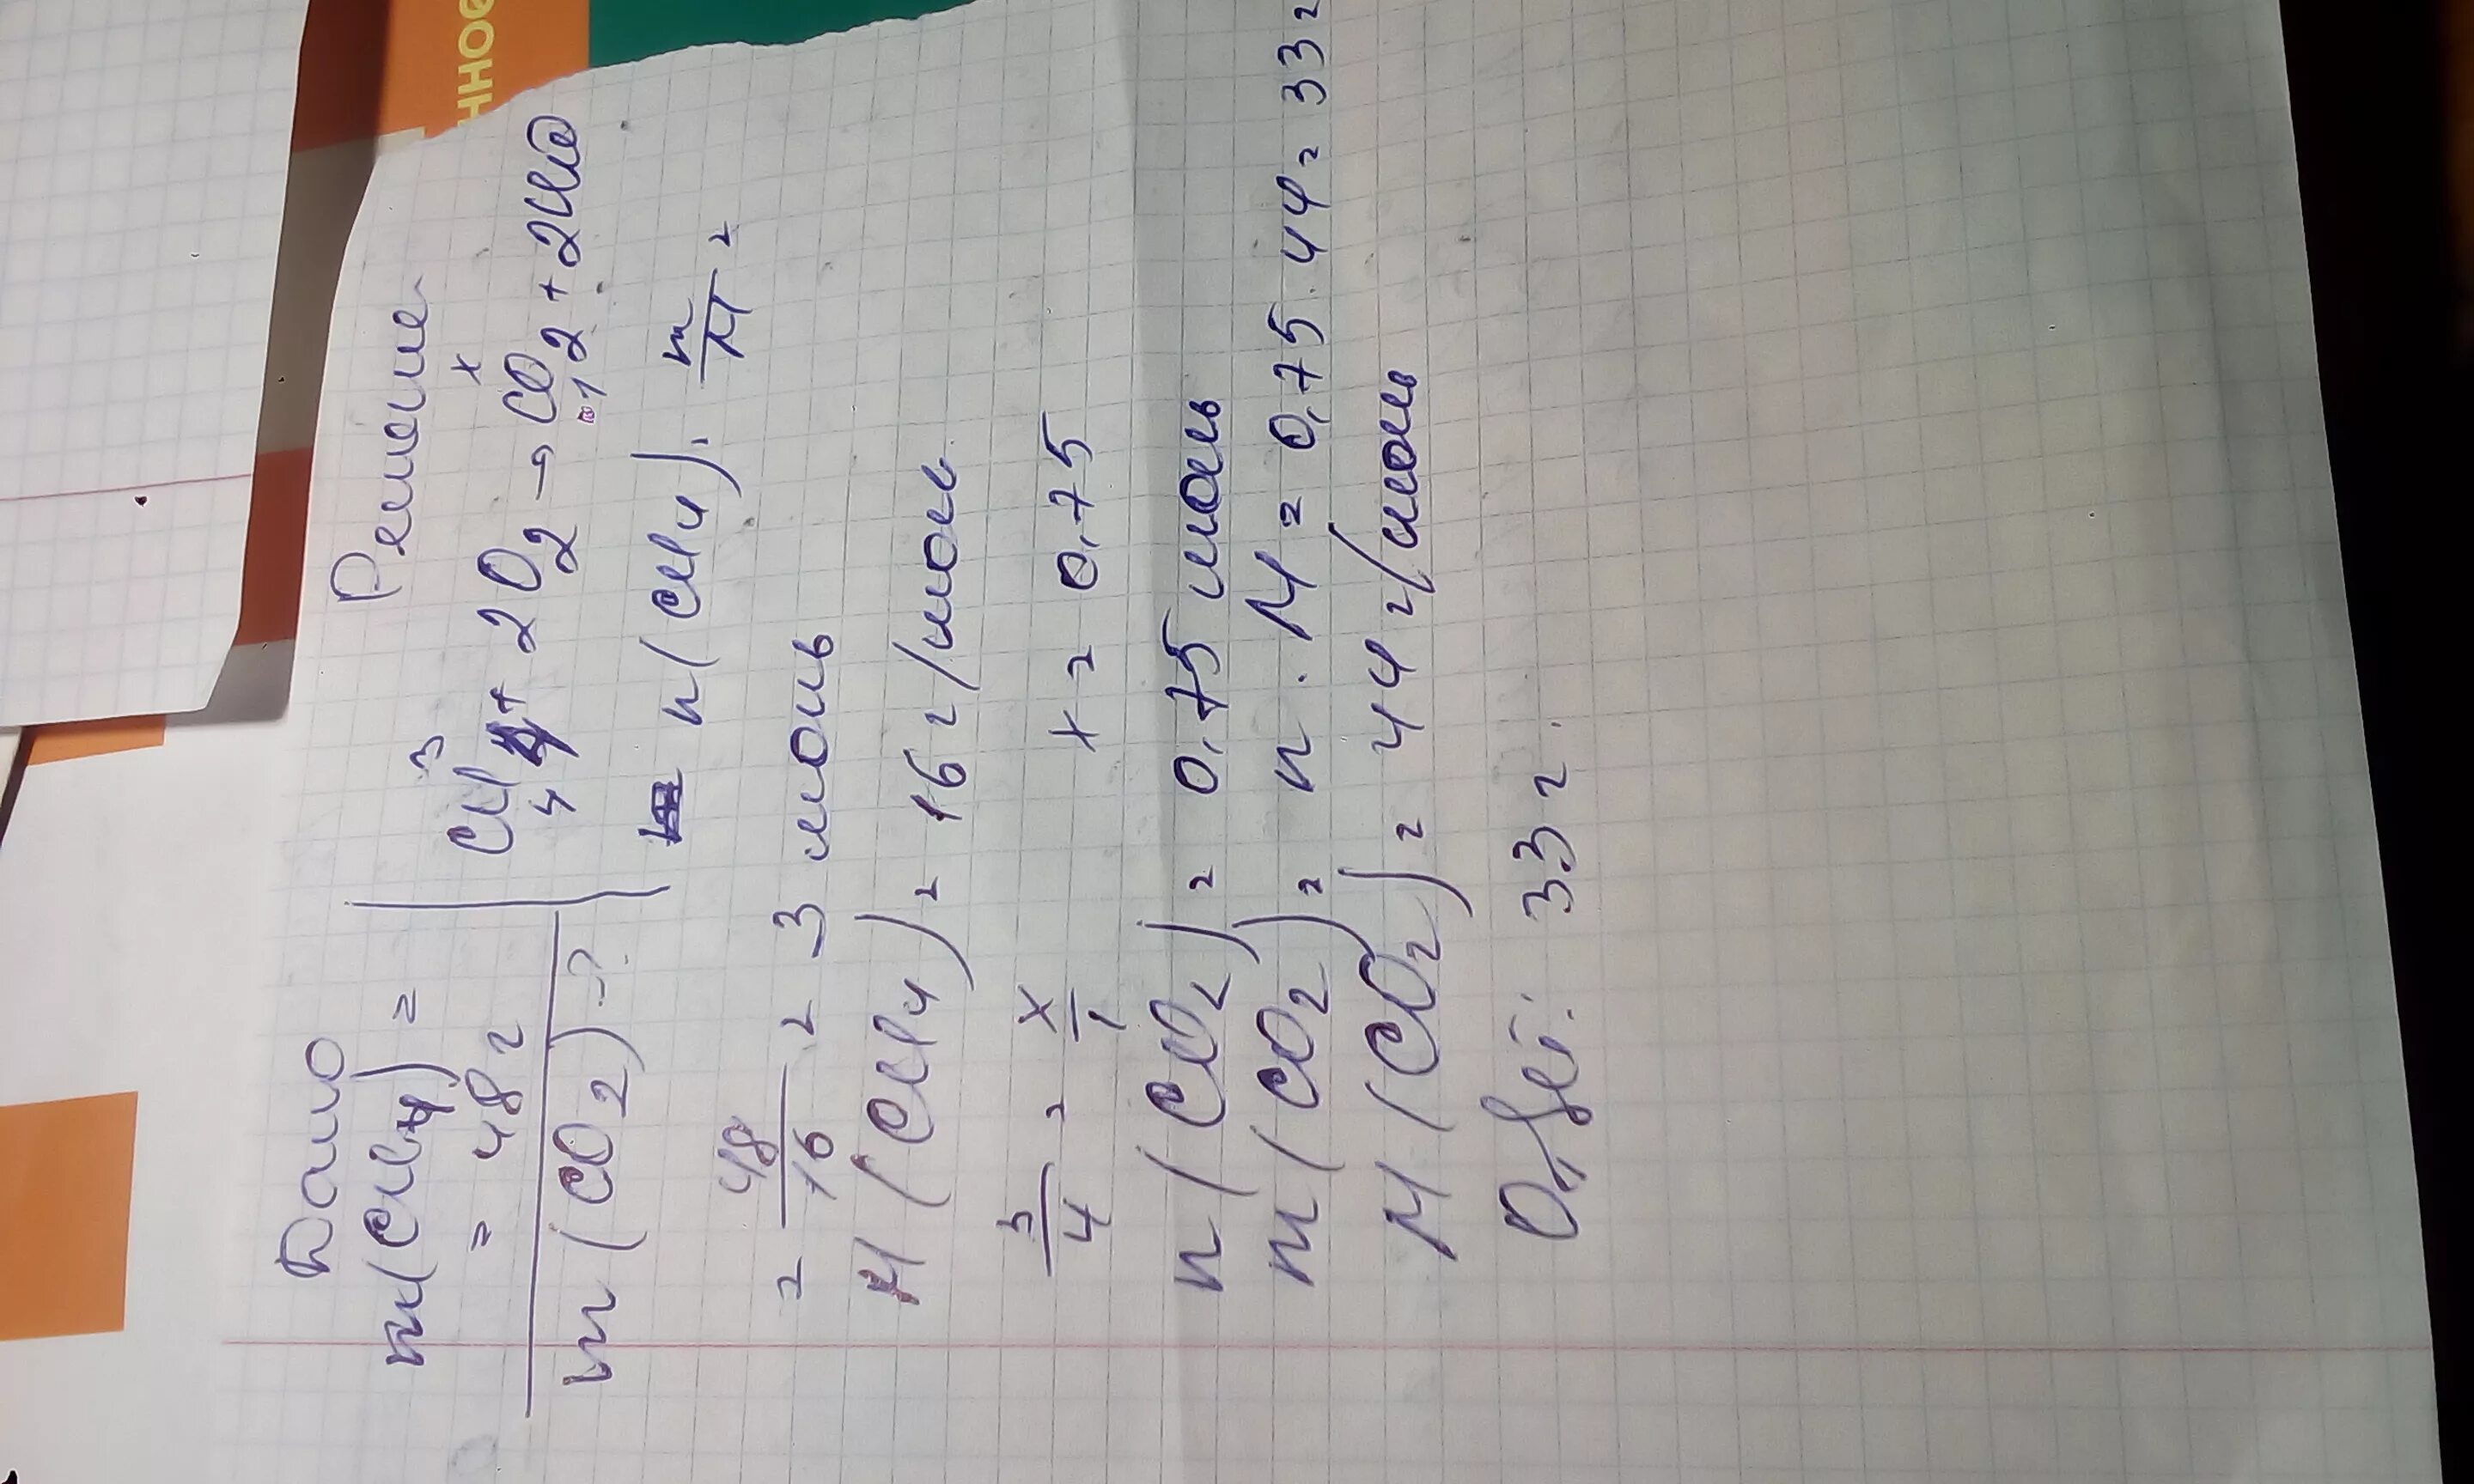 нно
Дано
m(CH4) =
= 48 г
m(CO2) - ?
Решение
3 x
CH4 + 2O2 → CO2 + 2H2O
4 1
n(CH4) = m/M =
= 48/16 = 3 моль
M(CH4) = 16 г/моль
3/4 = x/1 x = 0,75
n(CO2) = 0,75 моль
m(CO2) = n · M = 0,75 · 44 = 33 г
M(CO2) = 44 г/моль
Ответ: 33 г.